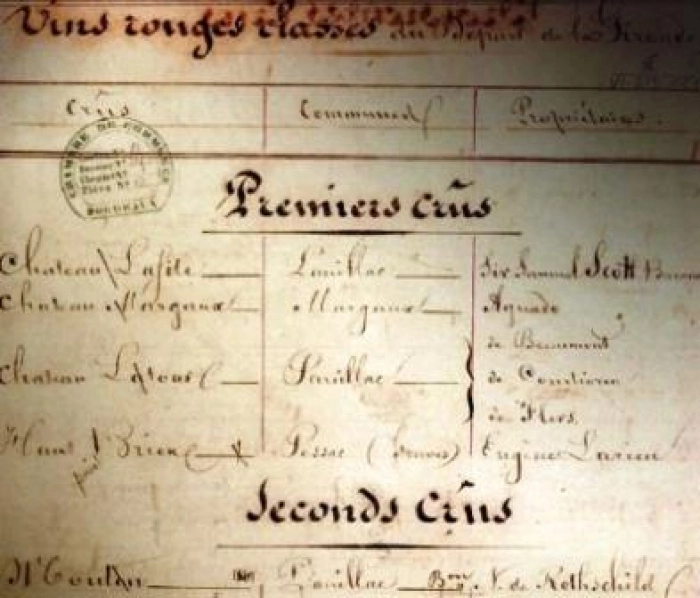 Vins rouges classés du Départ de la Gironde
Crûs Communes Propriétaires.
CHAMBRE DE COMMERCE
BORDEAUX
Premiers crûs
Château Lafite Pauillac Sir Samuel Scott
Château Margaux Margaux Aguado
de Beaumont
Château Latour Pauillac de Courtivron
de Flers.
Haut Brion Pessac (Graves) Eugène Larrieu
Seconds Crûs
Mouton Pauillac Bon N. de Rothschild